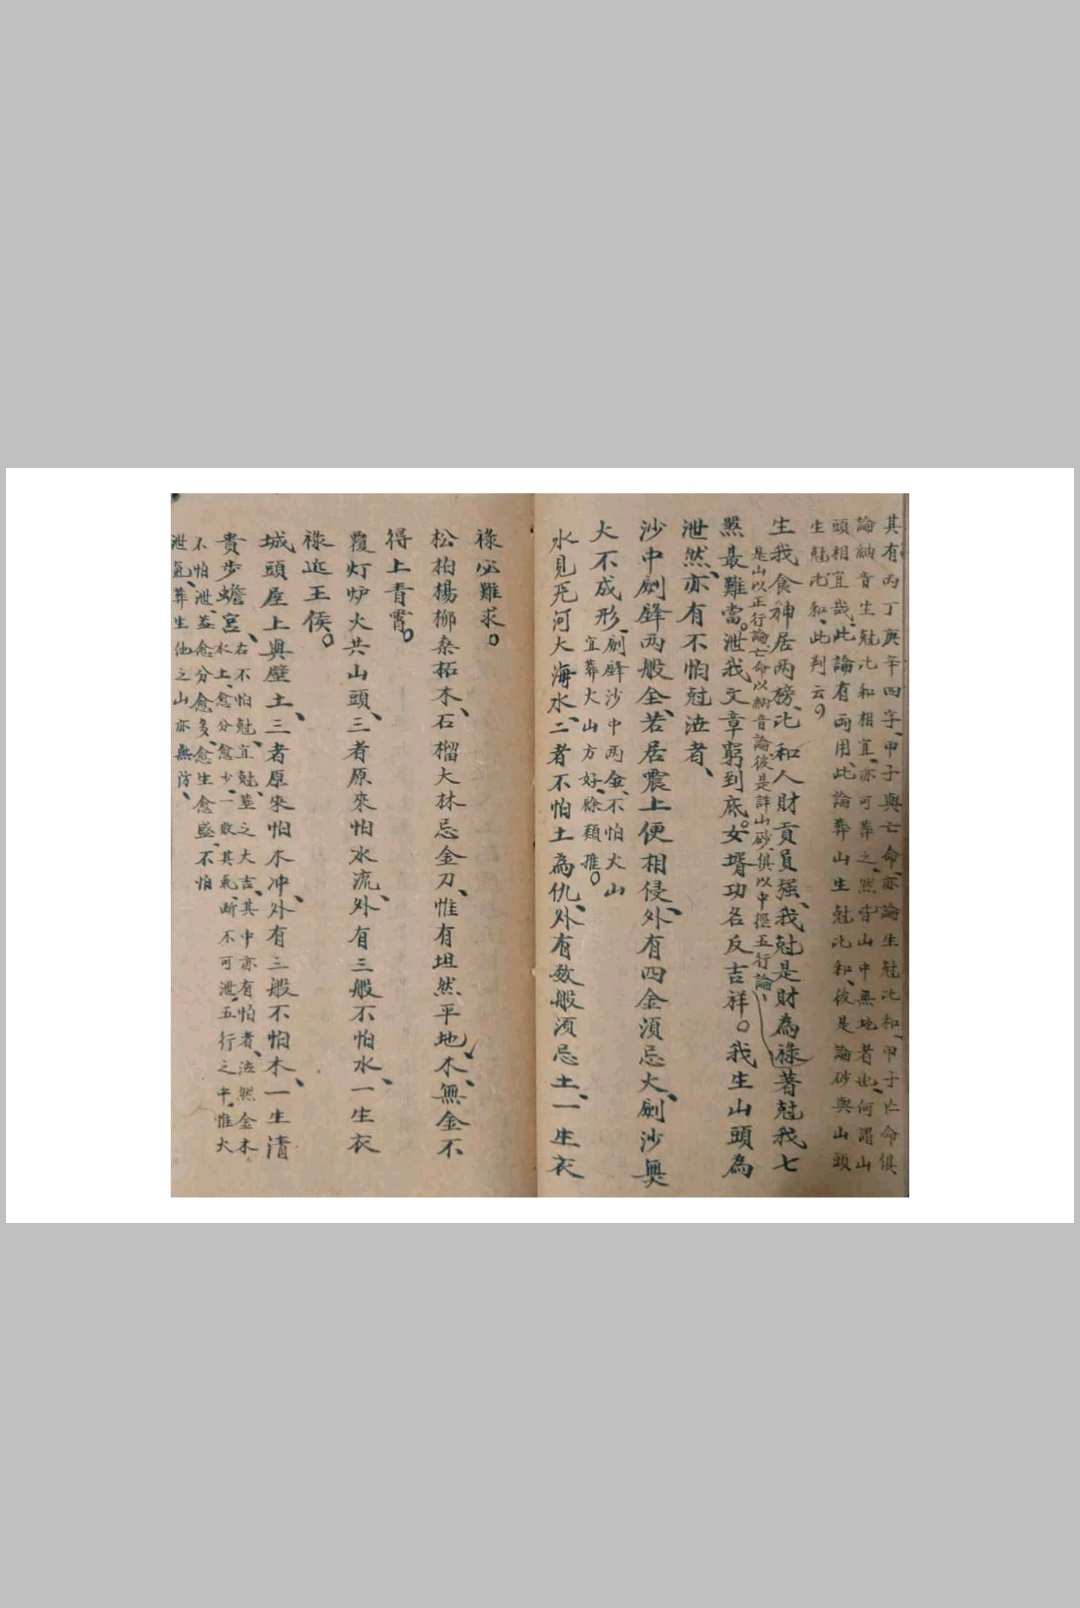 其有丙丁庚辛四字、甲子與亡命、亦論生尅比和、甲子亡命俱
論納音生尅比和相宜、亦可葬之、然皆山中無地者也、何謂山
頭相宜哉、此論有両用、此論葬山生尅比和、彼是論砂與山頭
生尅比和、此判云。
生我食神居两榜、比和人財貢員强、我尅是財為祿著尅我七
是山以正行論亡命以納音論、彼是詳山砂、俱以中 五行論、
煞最難當。泄我文章窮到底。女壻功名反吉祥。我生山頭為
泄然、亦有不怕尅泄者、
沙中劍鋒两般金、若居震上便相侵、外有四金須忌火、劍沙無
火不成形、
劍鋒沙中两金、不怕火山
宜葬火山方好、餘類推。
水見天河大海水、二者不怕土為仇、外有数般須忌土、一生衣
祿必難求。
松柏楊柳桑柘木、石榴大林忌金刀、惟有坦然平地木、無金不
得上青霄。
覆灯炉火共山頭、三者原來怕水流、外有三般不怕水、一生衣
祿近王侯。
城頭屋上與壁土、三者原來怕木冲、外有三般不怕木、一生清
貴步蟾宮、
右不怕尅、宜尅、葬之大吉、其中亦有怕者、泣然金木
水土、愈分愈少、一散其氣、断不可泄、五行之中、惟火
不怕泄、葢愈分愈多、愈生愈盛、不怕
泄氣、葬生他之山亦無防、